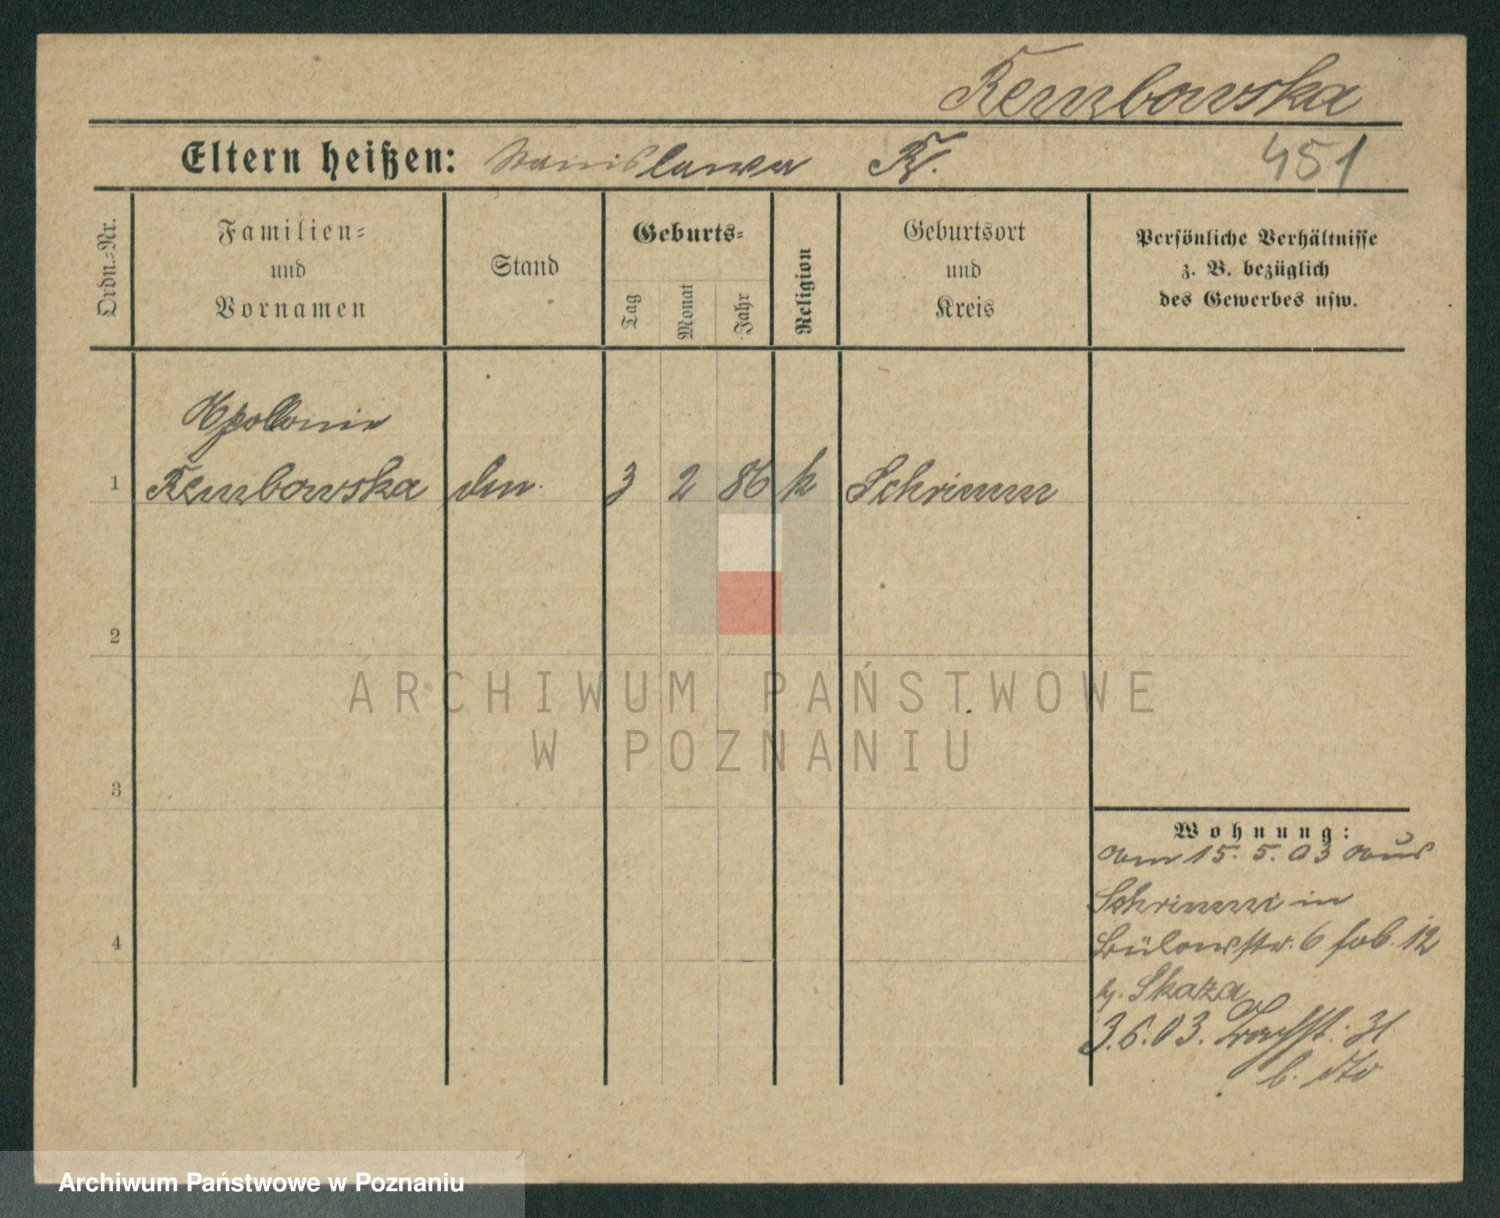 Rembowska
Eltern heißen: Stanislawa R.
451
Ordn.-Nr.
Familien- und Vornamen
Stand
Geburts-
Tag
Monat
Jahr
Religion
Geburtsort und Kreis
Persönliche Verhältnisse
z. B. bezüglich
des Gewerbes usw.
Apollonia
1 Rembowska 3 2 86 k Schrimm
2
ARCHIWUM PAŃSTWOWE
W POZNANIU
3
Wohnung:
am 15. 5. 03 aus
4
Schrimm in
Bülowstr. 6
Skaza
3.6.03. 31
b. dto
Archiwum Państwowe w Poznaniu